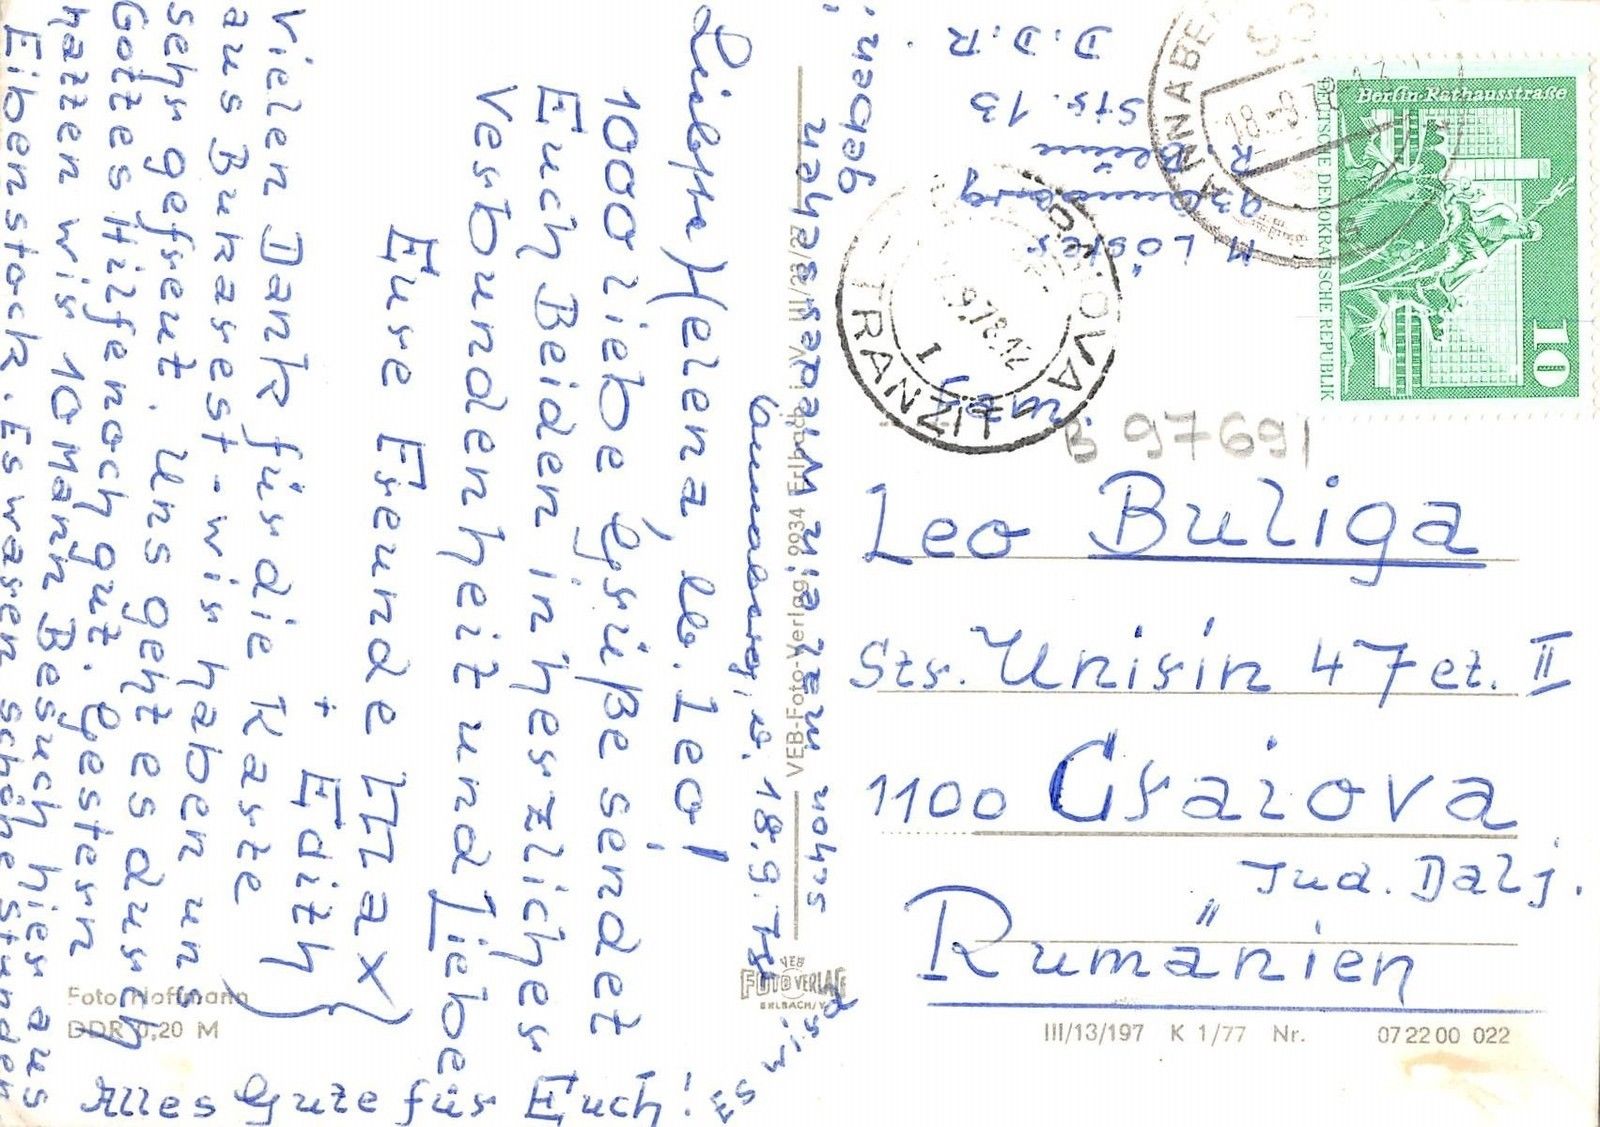 Annaberg, d. 18.9.78
Liebste Helena, lb. Leo!
1000 liebe Grüße sendet
Euch Beiden in herzlicher
Verbundenheit und Liebe
Eure Freunde Max
+ Edith
Vielen Dank für die Karte
aus Bukarest - wir haben uns
sehr gefreut. Uns geht es durch
Gottes Hilfe noch gut. Gestern
hatten wir 10 Mann Besuch hier aus
Eibenstock. Es waren schöne Stunden
Alles Gute für Euch!
Es
wird
schon mal ein Wiedersehen
geben!
M. Löster
93 Annaberg
R. Blum
Str. 13
D.D.R.
Foto Hoffmann
DDR 0,20 M
VEB-Foto-Verlag 9934 Erlbach i. V. III/23/27
VEB
FOTO VERLAG
ERLBACH/V.
ANNABE
18.-9.78
Berlin-Rathausstraße
DEUTSCHE DEMOKRATISCHE REPUBLIK
10
CRAIOVA
TRANZIT
9.78.12
1
B 97691
Leo Buliga
Str. Unirii 47 et. II
1100 Craiova
Jud. Dalj.
Rumänien
III/13/197 K 1/77 Nr. 07 22 00 022